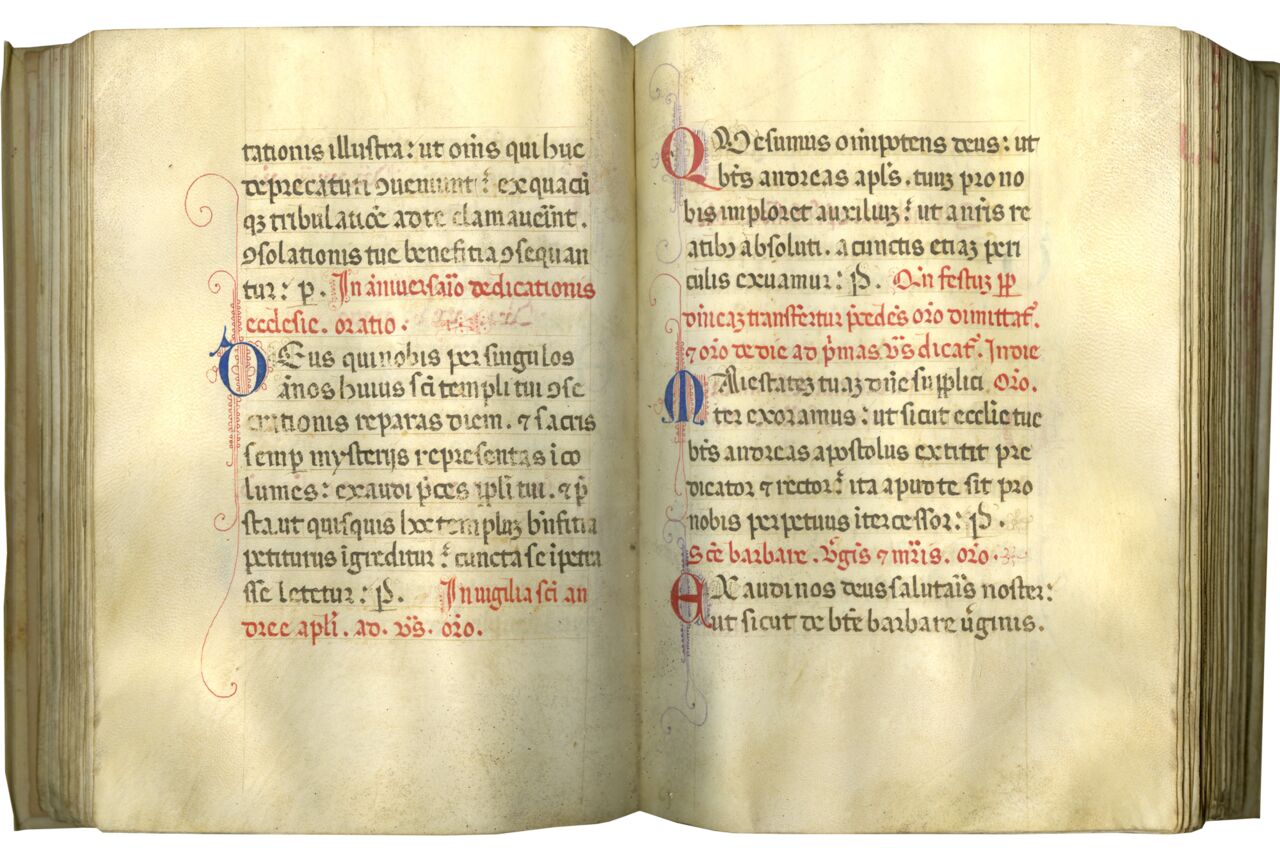 tationis illustra: ut om̄s qui huc
deprecaturi ꝯueniunt: ex quacū
qꝫ tribulatiōe ad te clamauerīnt.
ꝯsolationis tue benefitia ꝯsequan
tur: p. In āniuersar̄o dedicationis
ecclesie. oratio.
DEus qui nobis per singulos
ān̄os huius sc̄i templi tui ꝯse
crationis reparas diem. ⁊ sacris
semp mysterijs representas ico
lumes: exaudi p̄ces ip̄li tui. ⁊ p̄
sta. ut quisquis hoc templuꝫ bn̄fitia
petiturus īgreditur: cuncta se īpetra
sse letetur: P. In uigilia sc̄i an
dree apl̄i. ad. vs̄. or̄o.
QVesumus om̄ipotens deus: ut
bt̄s andreas apl̄s. tuuꝫ pro no
bis imploret auxiliuꝫ: ut a nr̄is re
atibꝫ absoluti. a cunctis etiaꝫ peri
culis exuamur: P. Qn̄ festuꝫ pp
dn̄icaꝫ transfertur p̄cedēs or̄o dimittat᷑.
⁊ or̄o de die ad p̄mas vs̄ dicat᷑. In die
MAiestateꝫ tuaꝫ dn̄e supplici or̄o.
ter exoramus: ut sicut eccl̄ie tue
bt̄s andreas apostolus extitit pre
dicator ⁊ rector: ita apud te sit pro
nobis perpetuus ītercessor: P.
Sc̄e barbare. v̄gīs ⁊ mr̄is. or̄o.
EXaudi nos deus salutar̄is noster:
ut sicut de bt̄e barbare ūginis.